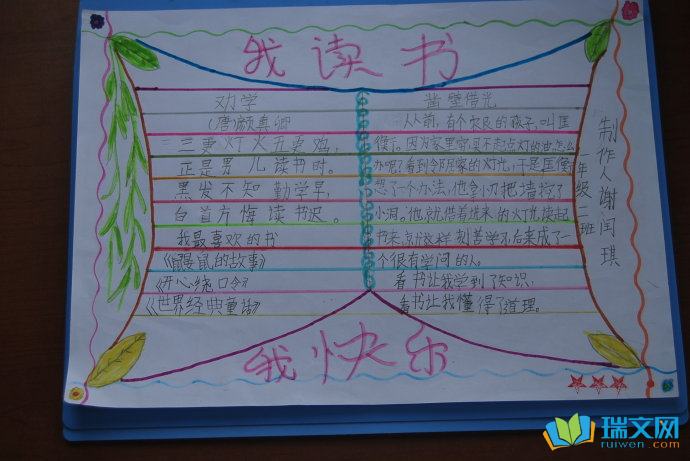 我读书
劝学
(唐)颜真卿
三更灯火五更鸡,
正是男儿读书时。
黑发不知勤学早,
白首方悔读书迟。
我最喜欢的书
《鼹鼠的故事》
《开心绕口令》
《世界经典童话》
凿壁借光
从前,有个农民的孩子,叫匡
衡。因为家里穷,买不起点灯的油,怎么
办呢?看到令阝居家的灯光,于是匡衡
想了一个办法,他拿刀把墙挖了
小洞。他就借着进来的灯光读起
书来,就这样刻苦学习,后来成了一
个很有学问的人。
看书让我学到了知识,
看书让我懂得了道理。
年级二班
制作人谢闰琪
我快乐
瑞文网
ruiwen.com